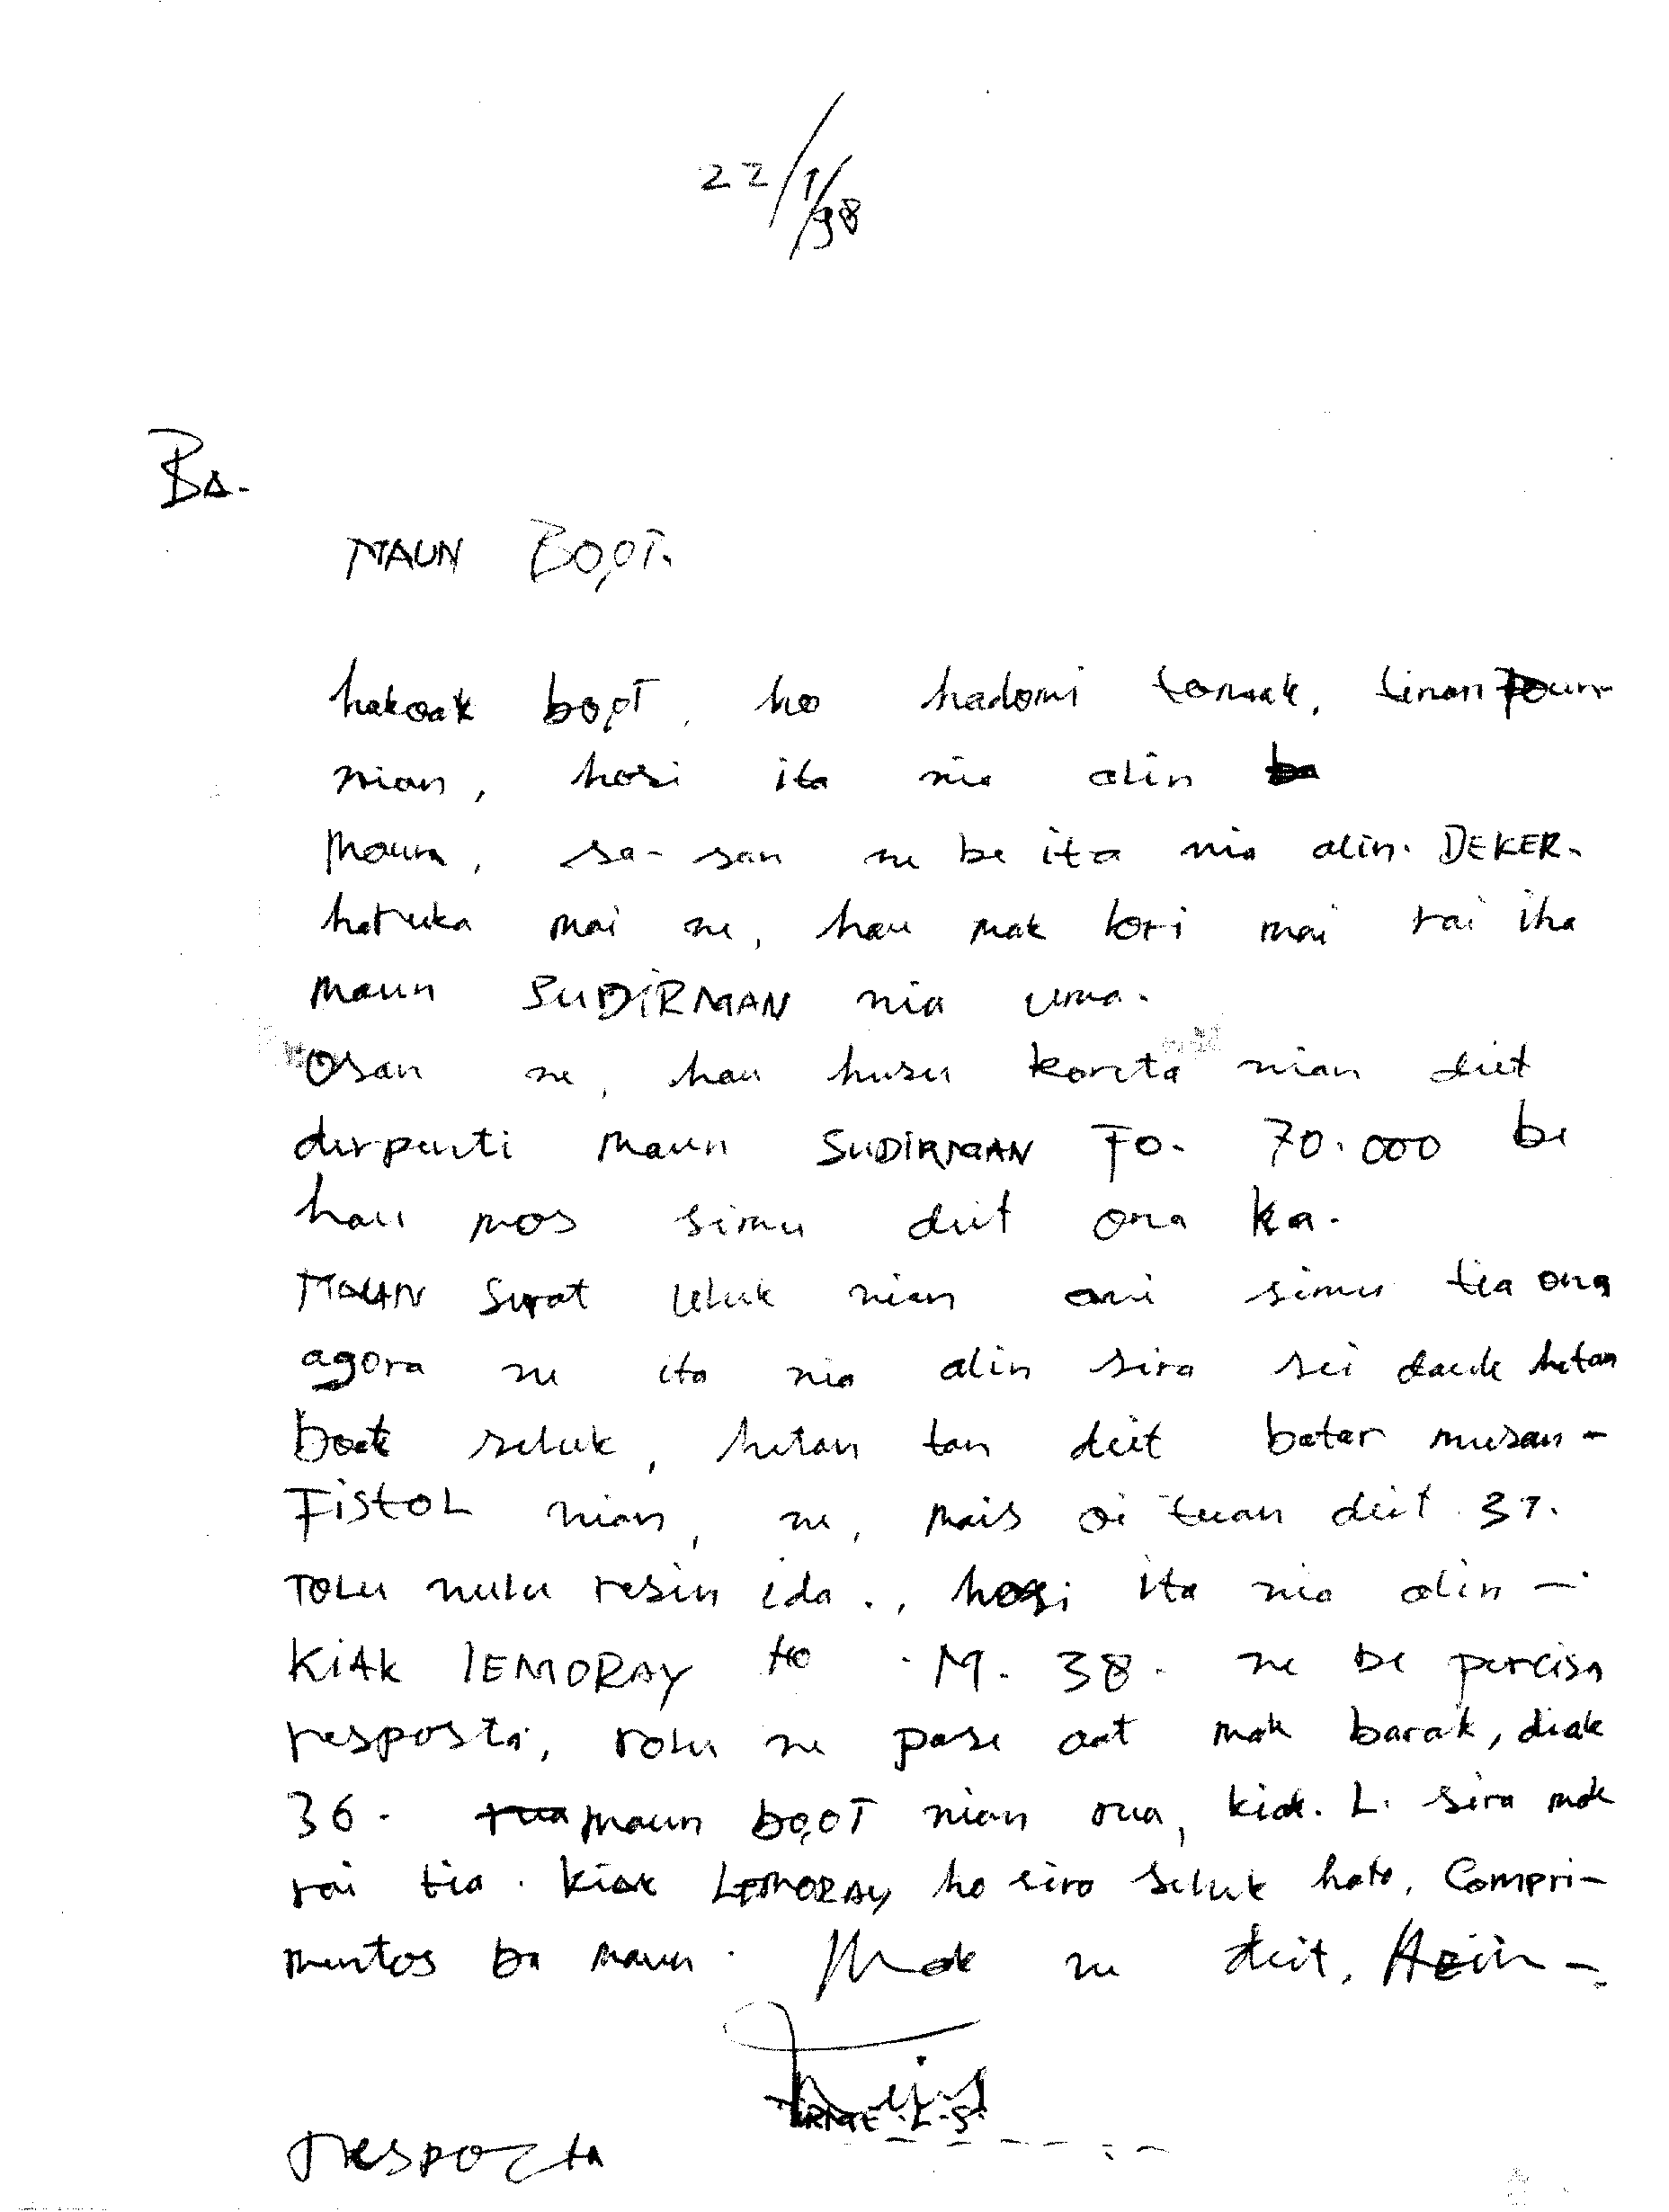 22/1/98
Ba.
MAUN BO,OT.
hakoak bo,oT, ho hadomi tomak, tinan foun
nian, hosi ita nia alin
Maun, sa-san ne be ita nia alin. DEKER.
haruka mai ne, hau mak lori mai rai iha
Maun SUDIRMAN nia uma.
Osan ne, hau husu kareta nian deit
derpenti Maun SUDIRMAN FO. 70.000 be
hau mos simu deit ona ka.
MAUN Surat uluk nian ami simu tia ona
agora ne ita nia alin sira sei dauk hetan
buat seluk, hetan tan deit batar musan-
FistoL nian, ne, mais oi tuan deit 31.
TOLU nulu resin ida., hosi ita nia alin -
KiAk LEMORAY ho M. 38. ne be percisa
resposta, tolu ne pase aat mak barak, diak
36. maun bo,oT nian rua, kiak. L. sira mak
rai tia. Kiak LEMORAY ho sira seluk hato, Compri-
mentos ba maun. Mak ne deit, Hein -
L.S.
resposta